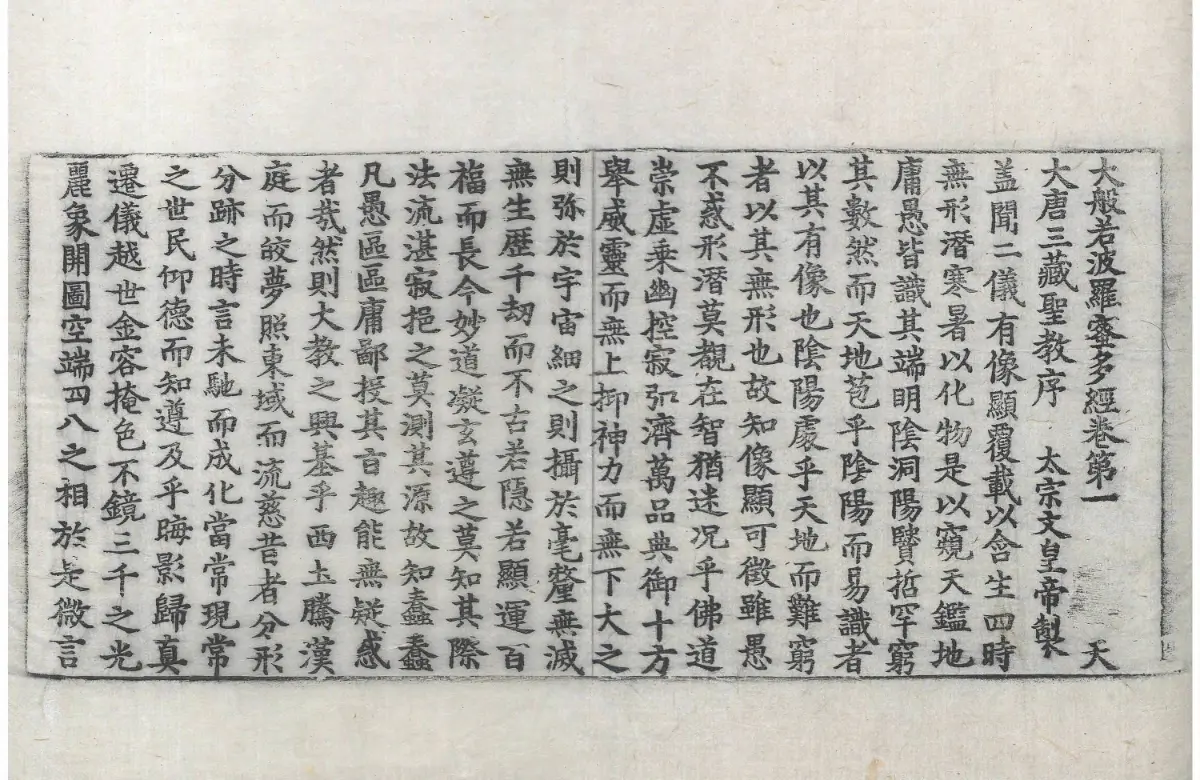 大般若波羅蜜多經卷第一 天
大唐三藏聖教序 太宗文皇帝製
盖聞二儀有像顯覆載以含生四時
無形潛寒暑以化物是以窺天鑑地
庸愚皆識其端明陰洞陽賢哲罕窮
其數然而天地苞乎陰陽而易識者
以其有像也陰陽處乎天地而難窮
者以其無形也故知像顯可徵雖愚
不惑形潛莫覩在智猶迷况乎佛道
崇虛乗幽控寂弘濟萬品典御十方
舉威靈而無上抑神力而無下大之
則弥於宇宙細之則攝於毫釐無滅
無生歷千劫而不古若隱若顯運百
福而長今妙道凝玄遵之莫知其際
法流湛寂挹之莫測其源故知蠢蠢
凡愚區區庸鄙授其旨趣能無疑惑
者哉然則大教之興基乎西土騰漢
庭而皎夢照東域而流慈昔者分形
分跡之時言未馳而成化當常現常
之世民仰德而知遵及乎晦影歸真
遷儀越世金容掩色不鏡三千之光
麗象開圖空端四八之相於是微言